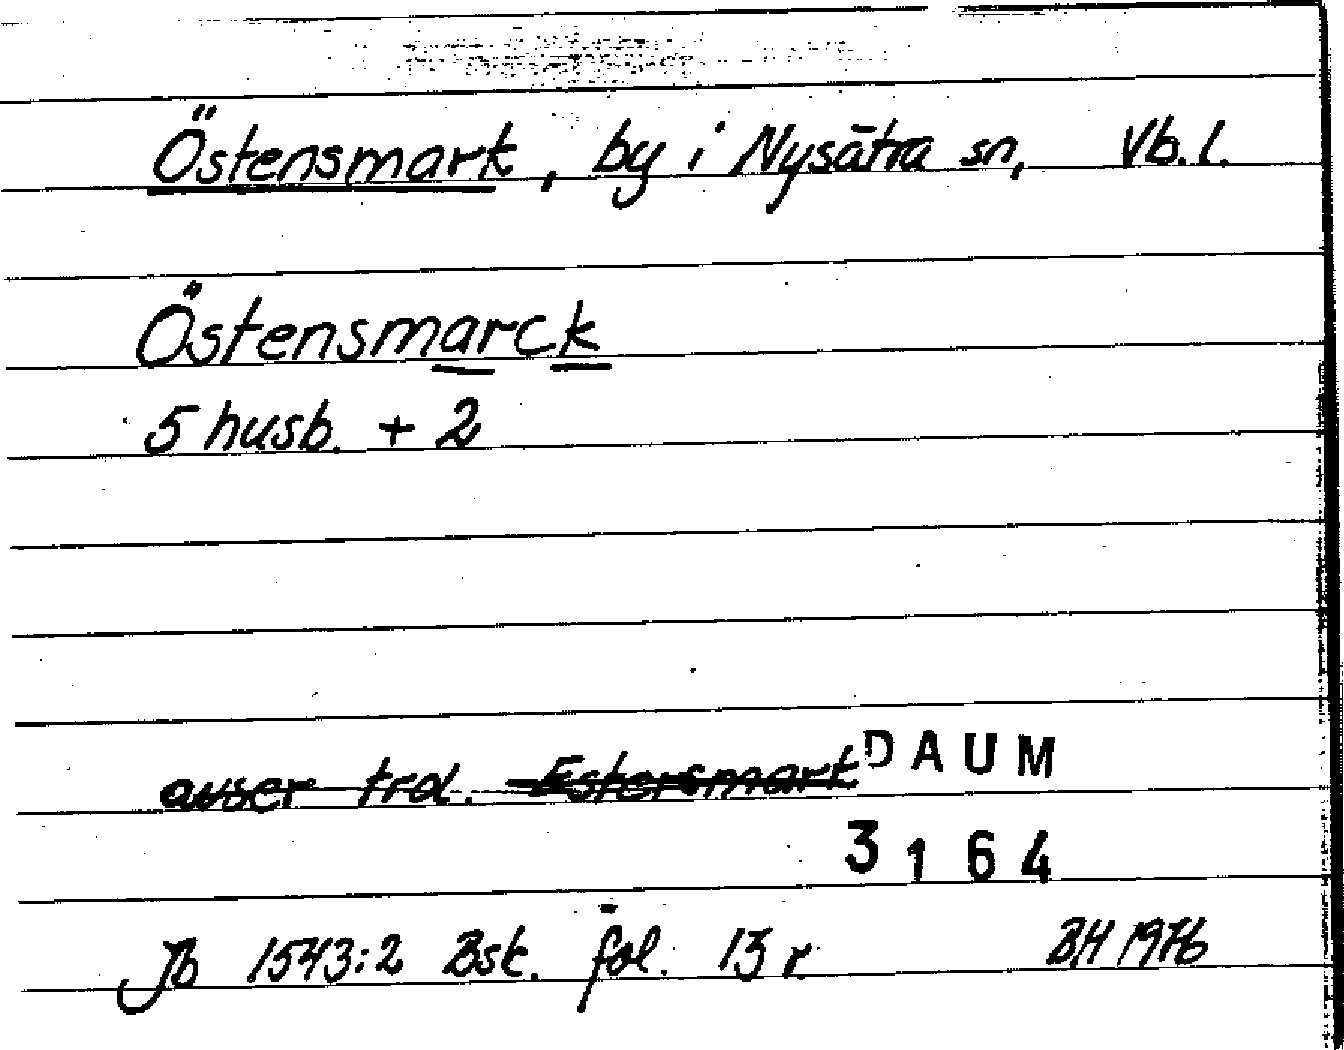 Östensmark, by i Nysätra sn, Vb.l.
Östensmarck
5 husb. + 2
avser trol. Estersmark
DAUM
3164
Jb 1543:2 Bsk. fol. 13 r BH 1976